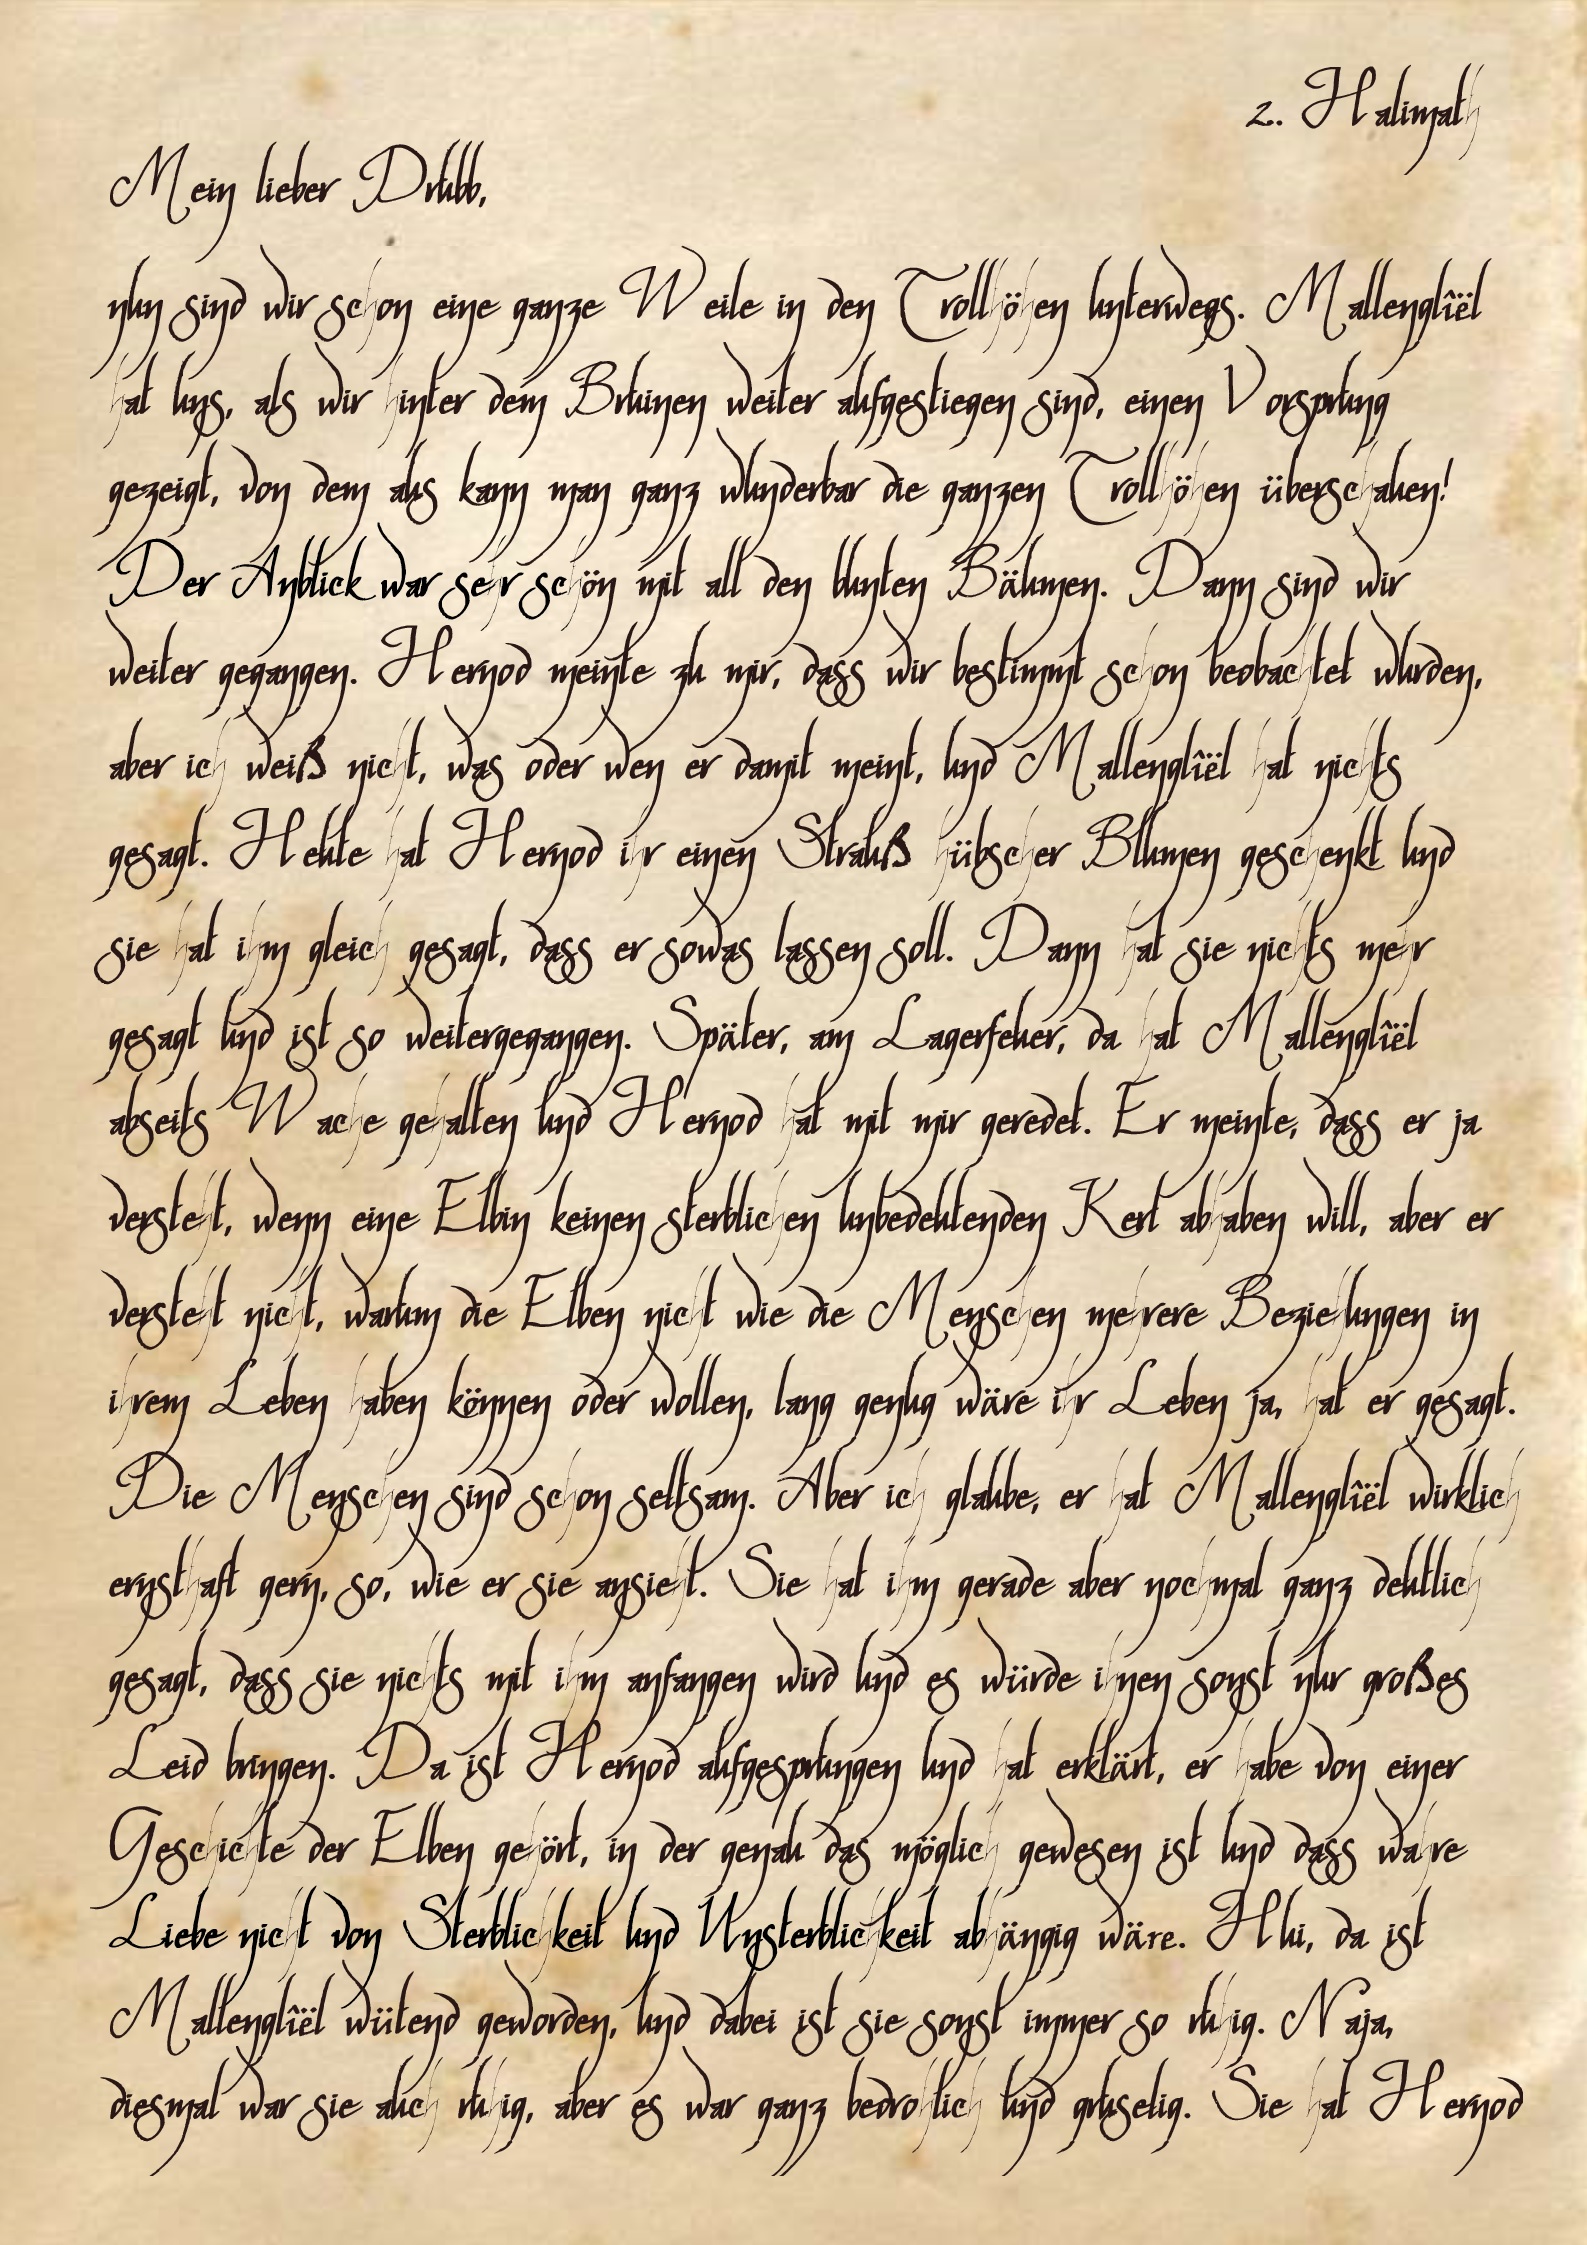 2. Halimath
Mein lieber Drubb,
nun sind wir schon eine ganze Weile in den Trollhöhen unterwegs. Mallenglîël
hat uns, als wir hinter dem Bruinen weiter aufgestiegen sind, einen Vorsprung
gezeigt, von dem aus kann man ganz wunderbar die ganzen Trollhöhen überschauen!
Der Anblick war sehr schön mit all den bunten Bäumen. Dann sind wir
weiter gegangen. Hernod meinte zu mir, dass wir bestimmt schon beobachtet wurden,
aber ich weiß nicht, was oder wen er damit meint, und Mallenglîël hat nichts
gesagt. Heute hat Hernod ihr einen Strauß hübscher Blumen geschenkt und
sie hat ihm gleich gesagt, dass er sowas lassen soll. Dann hat sie nichts mehr
gesagt und ist so weitergegangen. Später, am Lagerfeuer, da hat Mallenglîël
abseits Wache gehalten und Hernod hat mit mir geredet. Er meinte, dass er ja
versteht, wenn eine Elbin keinen sterblichen unbedeutenden Kerl abhaben will, aber er
versteht nicht, warum die Elben nicht wie die Menschen mehrere Beziehungen in
ihrem Leben haben können oder wollen, lang genug wäre ihr Leben ja, hat er gesagt.
Die Menschen sind schon seltsam. Aber ich glaube, er hat Mallenglîël wirklich
ernsthaft gern, so, wie er sie ansieht. Sie hat ihm gerade aber nochmal ganz deutlich
gesagt, dass sie nichts mit ihm anfangen wird und es würde ihnen sonst nur großes
Leid bringen. Da ist Hernod aufgesprungen und hat erklärt, er habe von einer
Geschichte der Elben gehört, in der genau das möglich gewesen ist und dass wahre
Liebe nicht von Sterblichkeit und Unsterblichkeit abhängig wäre. Hui, da ist
Mallenglîël wütend geworden, und dabei ist sie sonst immer so ruhig. Naja,
diesmal war sie auch ruhig, aber es war ganz bedrohlich und gruselig. Sie hat Hernod